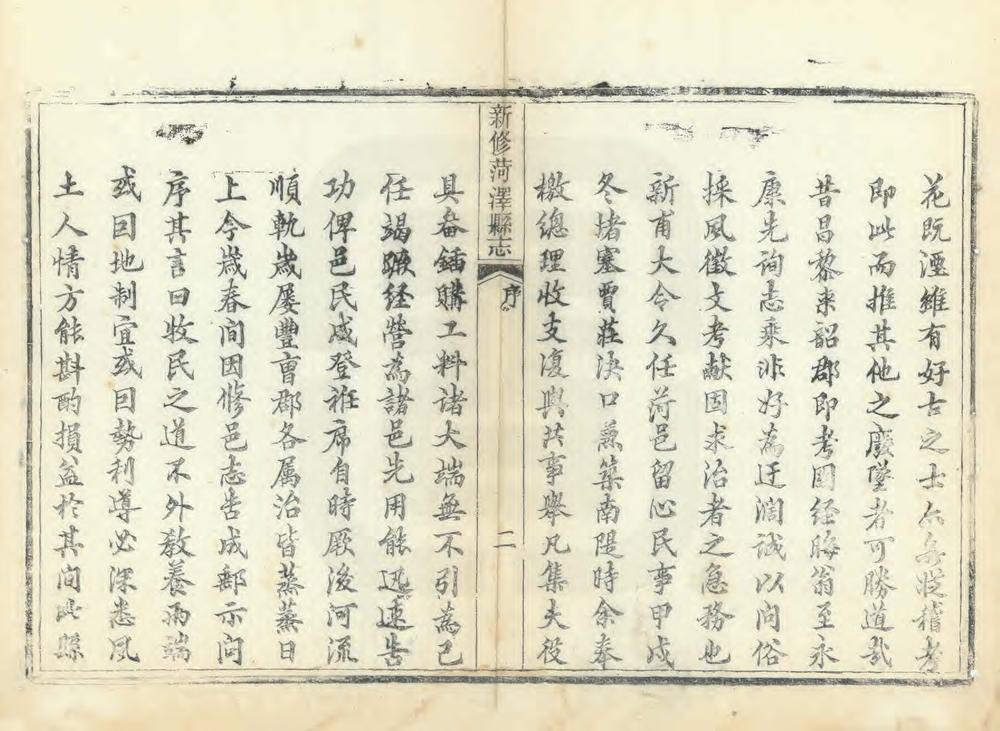 花既湮雖有好古之士亦無從稽考
即此而推其他之廢墜者可勝道哉
昔昌黎柬韶郡即考圖经晦翁至永
康先詢志乘非好為迂濶誠以问俗
採风徵文考献固求治者之急務也
新甫大令久任菏邑留心民事甲戌
冬堵塞賈莊决口兼築南隄時余奉
檄總理收支復興共事舉凡集夫役
新修菏澤縣志
序
二
具畚鍤購工料诸大端無不引為己
任竭蹶经營為諸邑先用能迅速告
功俾邑民咸登袵席自時厥後河流
順軌嵗屢豐曺郡各属治皆蒸蒸日
上今嵗春间因修邑志告成郵示问
序其言曰牧民之道不外教養兩端
或因地制宜或因勢利導必深悉風
土人情方能斟酌損益於其间此縣